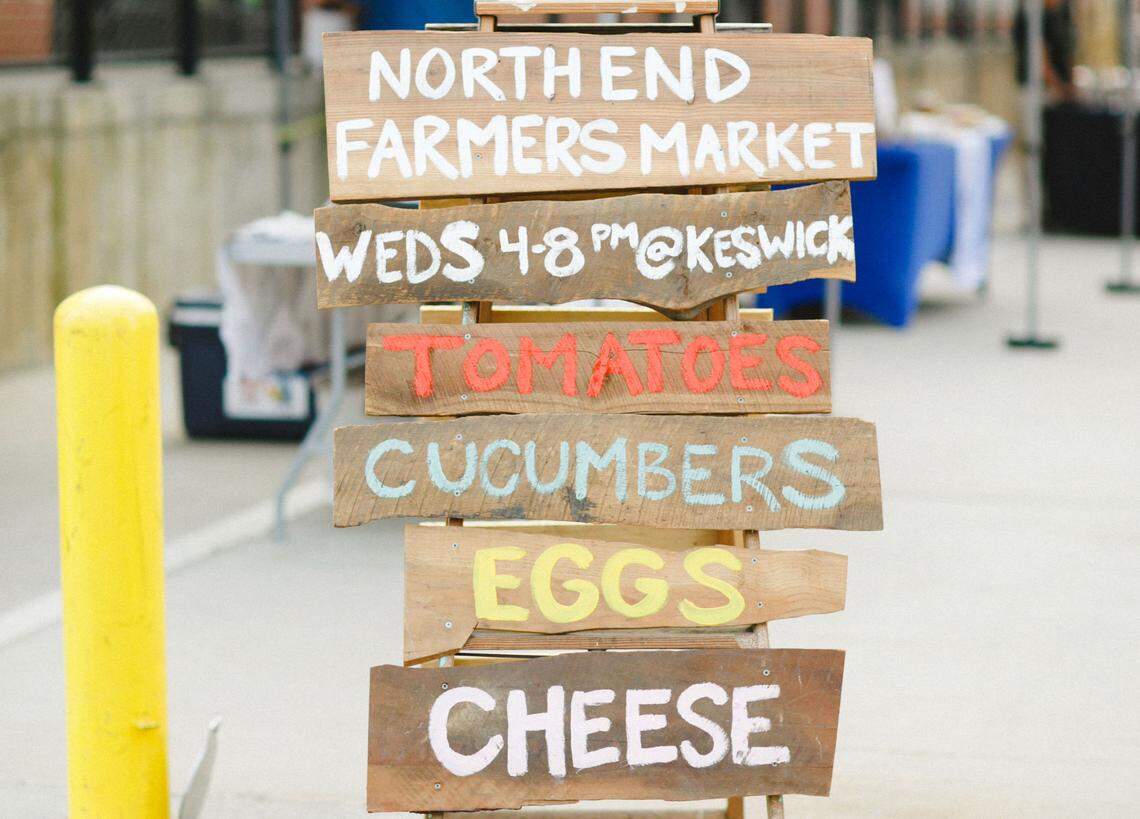 NORTH END
FARMERS MARKET
WEDS 4-8 PM @ KESWICK
TOMATOES
CUCUMBERS
EGGS
CHEESE